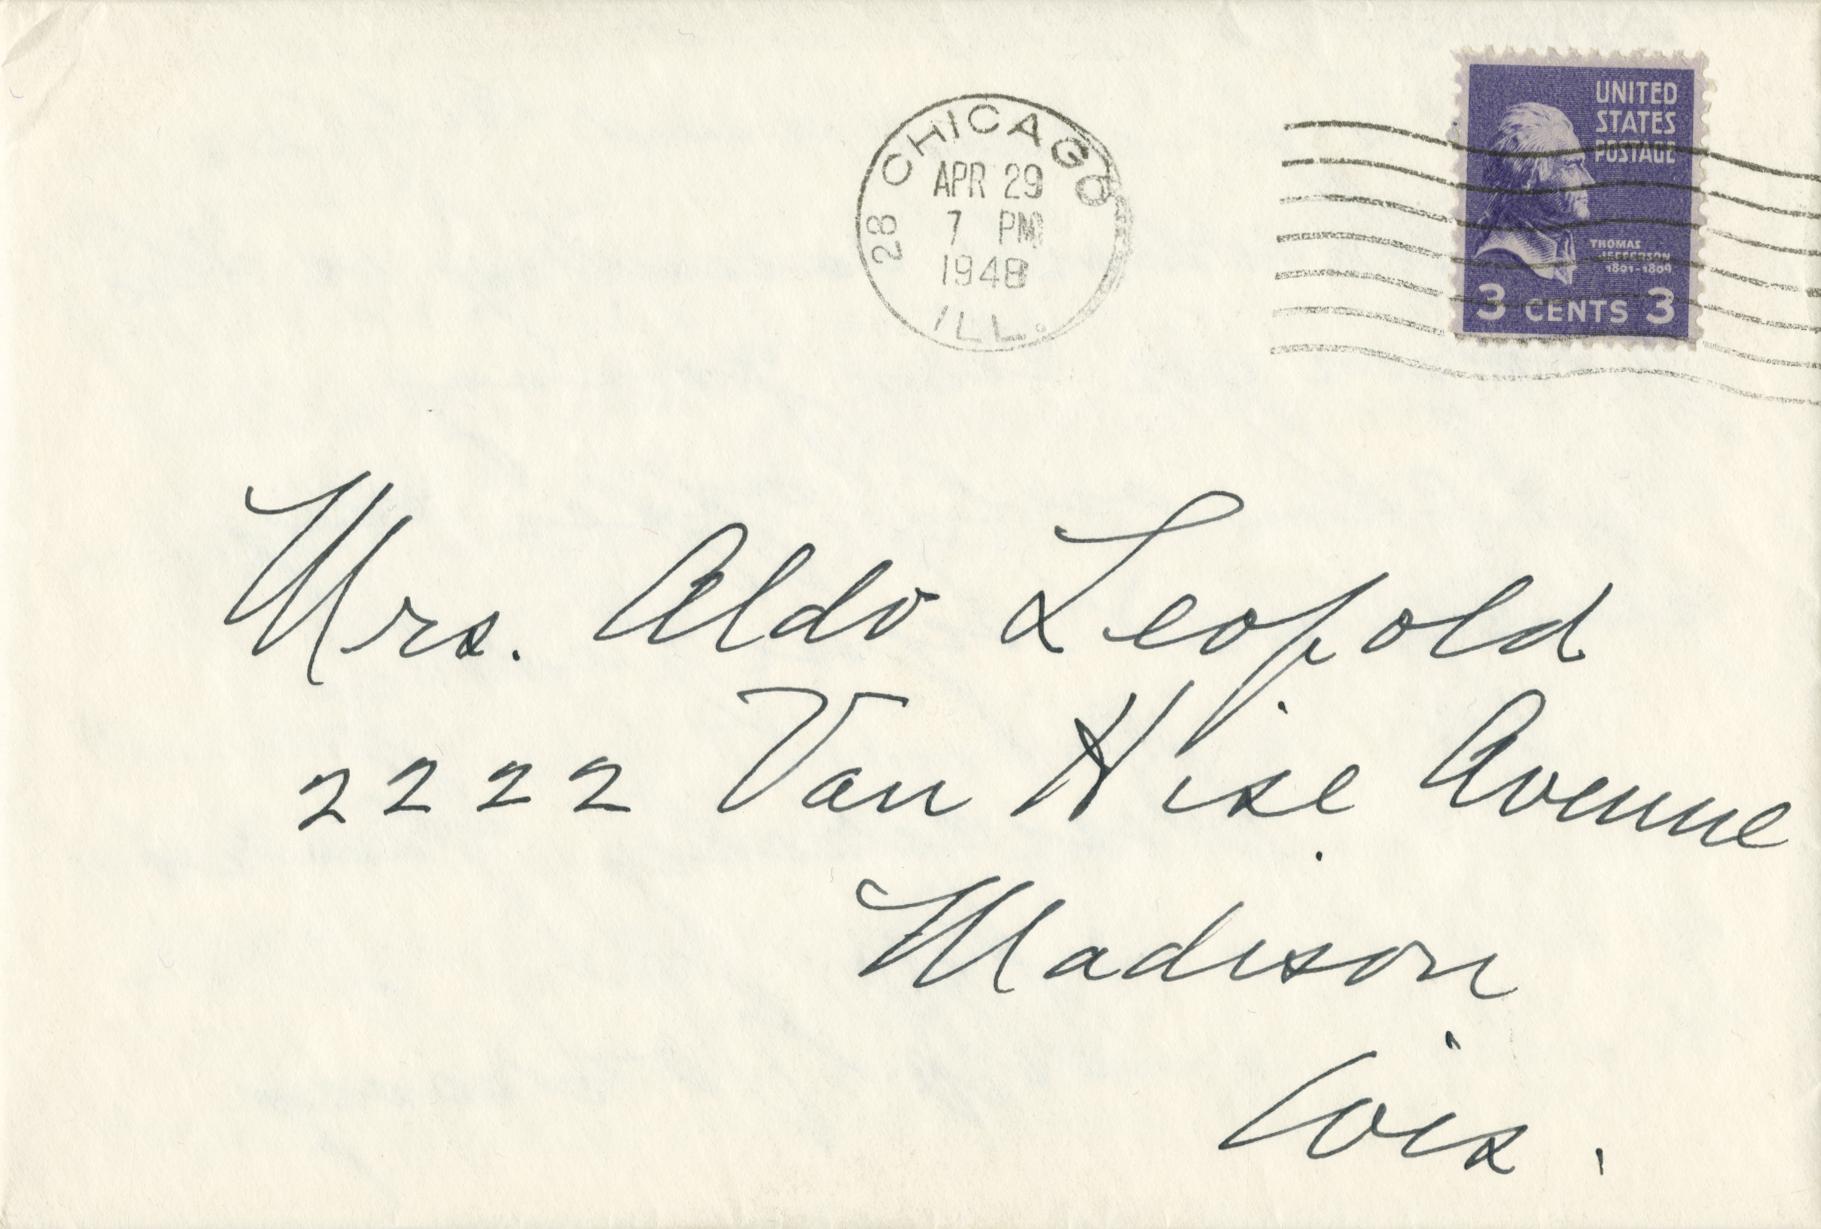 28 CHICAGO
APR 29
7 PM
1948
ILL.
UNITED
STATES
POSTAGE
THOMAS
JEFFERSON
1801-1809
3 CENTS 3
Mrs. Aldo Leopold
2222 Van Hise Avenue
Madison
Wis.